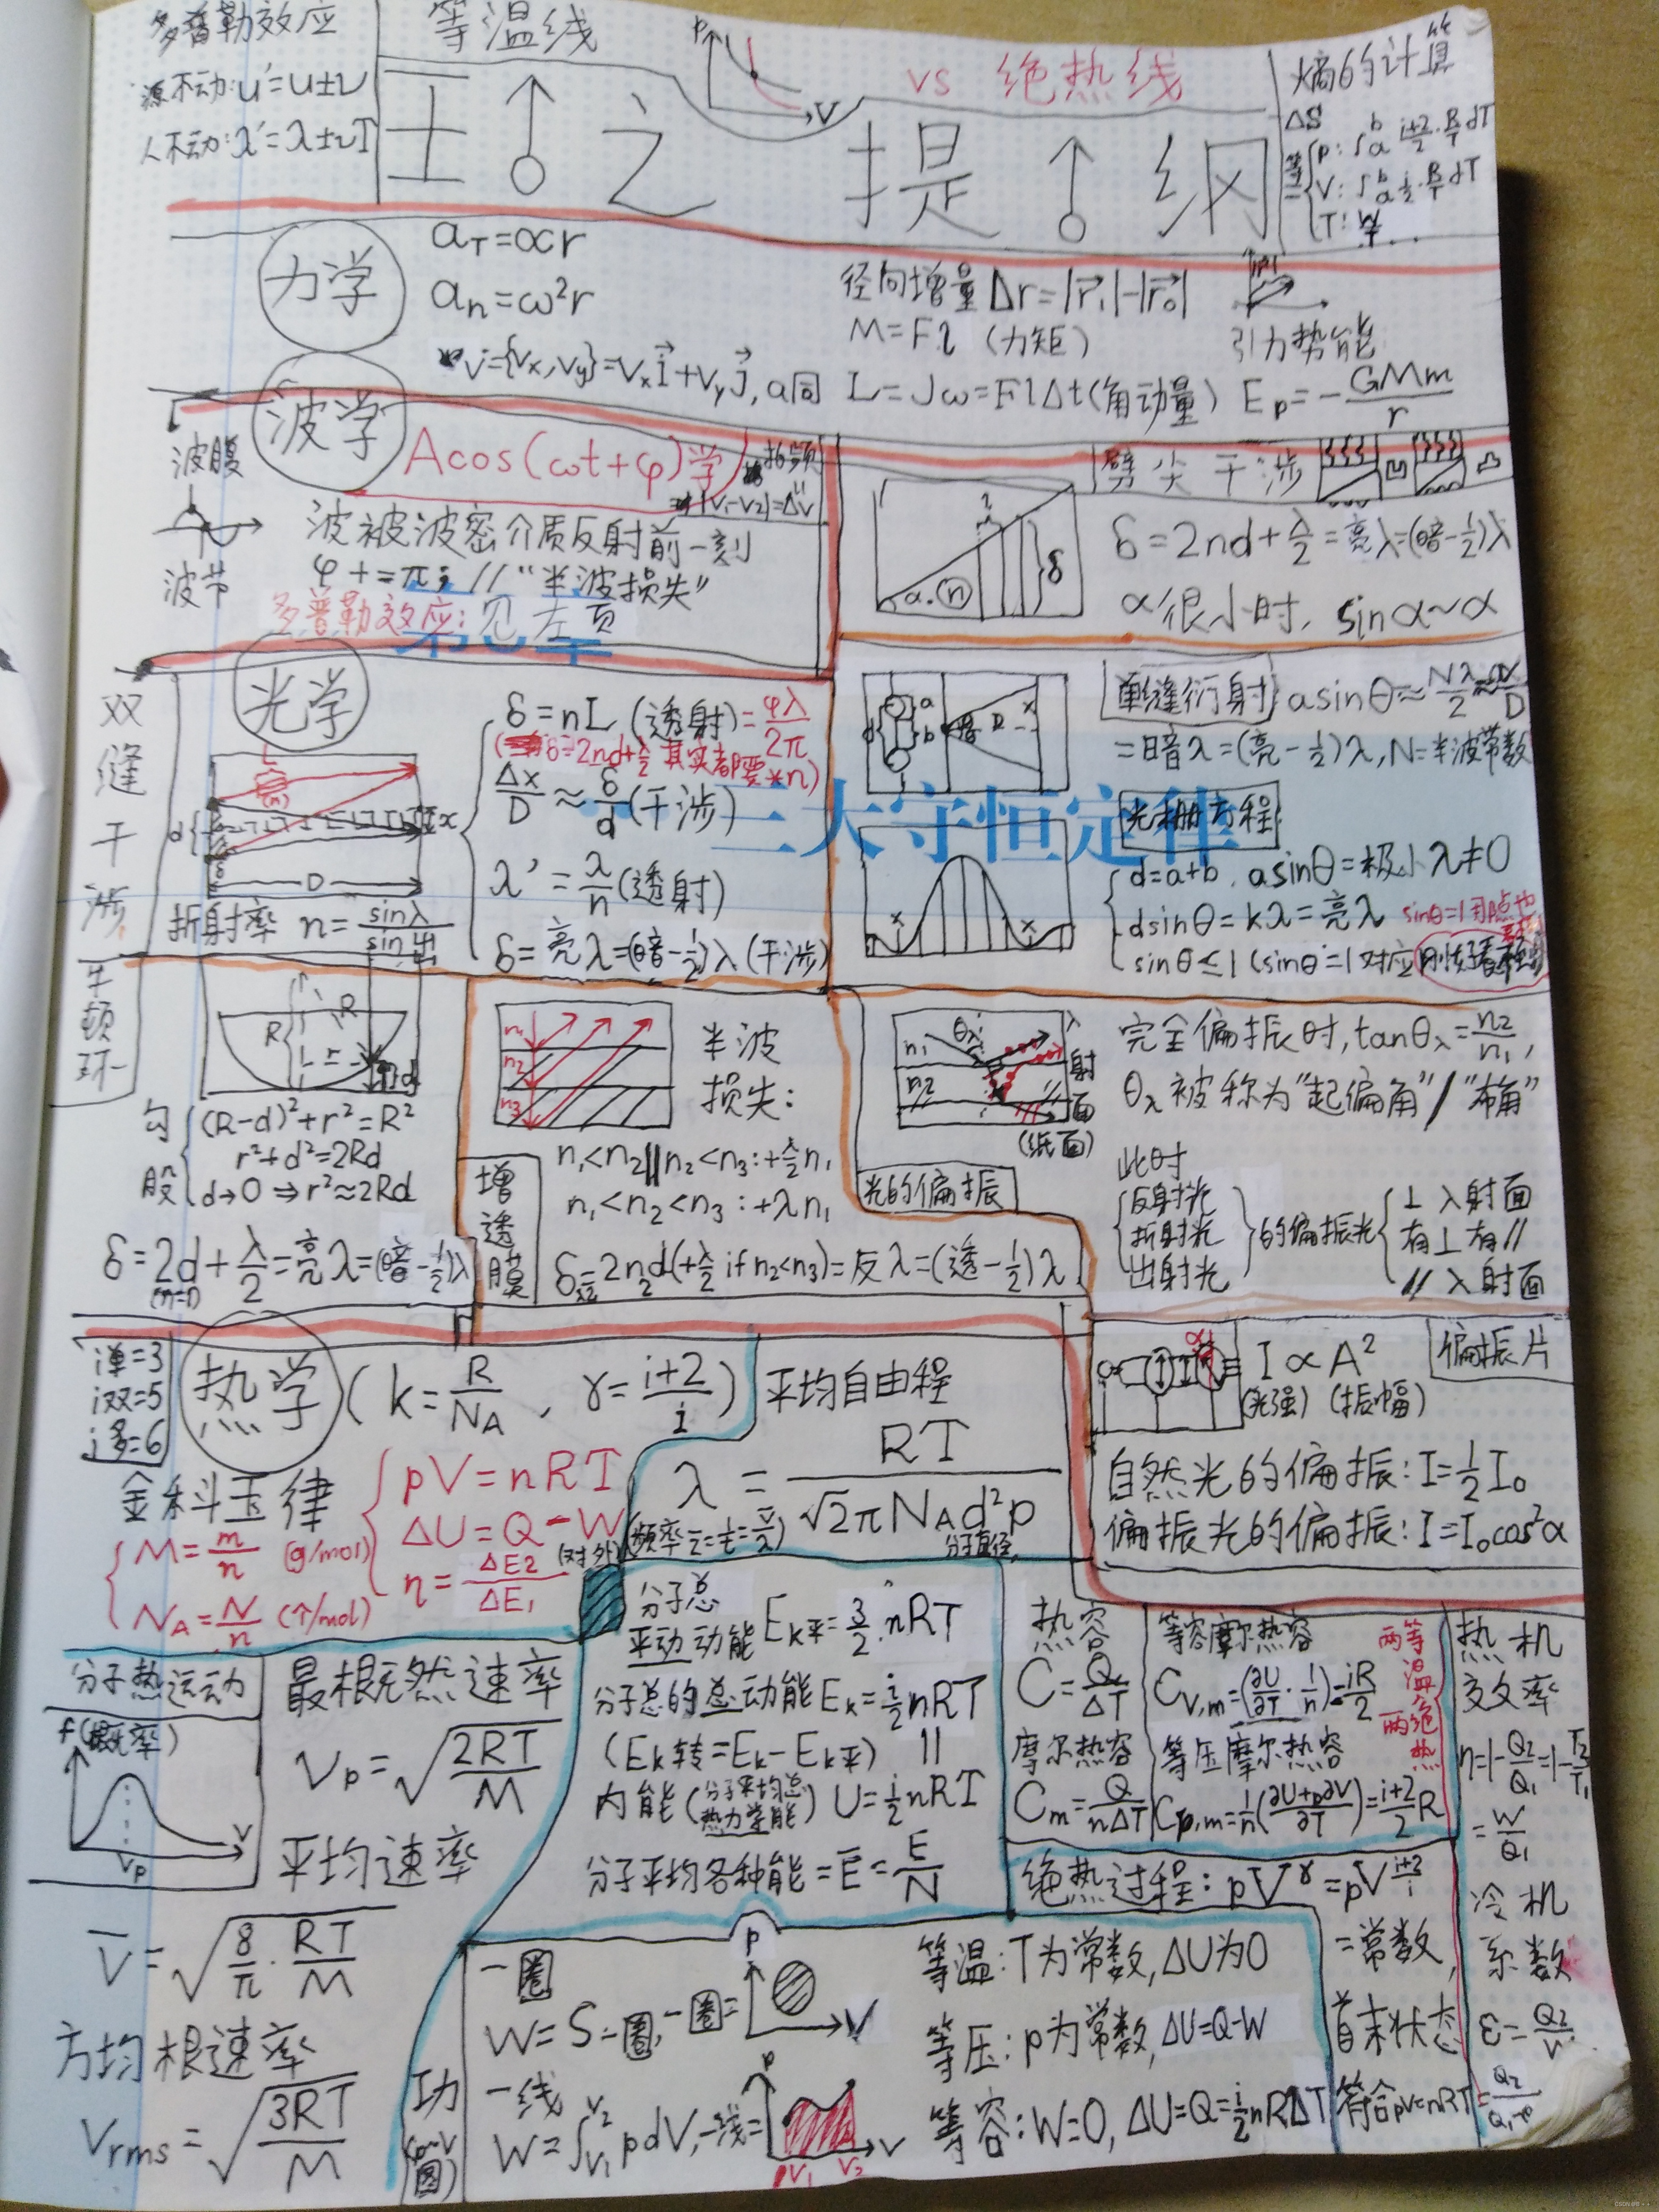 多普勒效应
源不动:u'=u±v
人不动:λ'=λ±vT
等温线
p
V
vs 绝热线
熵的计算
ΔS
等
p: ∫a b i+2/2·R/T dT
V: ∫a b i/2·R/T dT
T: W/T
土 之 提 纲
力学
aT=αr
an=ω²r
v={Vx,Vy}=Vx i+Vy j, a同
径向增量Δr=|r₁|-|r₀|
M=Fl (力矩)
L=Jω=FlΔt(角动量)
引力势能
Ep=-GMm/r
波学
Acos(ωt+φ)学
拍频
|V₁-V₂|=Δv
波腹
波节
波被波密介质反射前一刻
φ+=π; //“半波损失”
多普勒效应:见左页
劈尖干涉
δ=2nd+λ/2=亮λ=(暗-1/2)λ
α很小时, sinα~α
光学
双缝干涉
D
折射率 n=sin入/sin出
δ=nL (透射)=φλ/2π
δ=2nd+λ/2 其实都要*n)
Δx/D≈δ/d(干涉)
λ'=λ/n(透射)
δ=亮λ=(暗-1/2)λ(干涉)
三大守恒定律
单缝衍射
asinθ≈Nλ/2≈ax/D
=暗λ=(亮-1/2)λ, N=半波带数
光栅方程
d=a+b, asinθ=极小λ≠0
dsinθ=kλ=亮λ
sinθ≤1 (sinθ=1对应
牛顿环
R
R
r
d
勾股
(R-d)²+r²=R²
r²+d²=2Rd
d→0 ⇒r²≈2Rd
δ=2d+λ/2=亮λ=(暗-1/2)λ
(n=1)
n₁
n₂
n₃
半波
损失:
n₁<n₂||n₂<n₃:+λ/2 n₁
n₁<n₂<n₃:+λn₁
增透膜
δ=2n₂d(+λ/2 if n₂<n₃)=反λ=(透-1/2)λ
n₁
n₂
入射面
(纸面)
光的偏振
完全偏振时,tanθ入=n₂/n₁,
θ入被称为“起偏角”/“布角”
此时
反射光
折射光
出射光
的偏振光
⊥入射面
有⊥有//
//入射面
偏振片
I∝A²
(光强) (振幅)
自然光的偏振:I=1/2 I₀
偏振光的偏振:I=I₀cos²α
i单=3
i双=5
i多=6
热学
(k=R/NA, γ=i+2/i)
金科玉律
M=m/n (g/mol)
NA=N/n (个/mol)
pV=nRT
ΔU=Q-W
(对外)
η=ΔE2/ΔE1
平均自由程
λ=RT/√2πNAd²p
分子直径
分子热运动
f(概率)
V
Vp
最概然速率
Vp=√2RT/M
平均速率
V=√8/π·RT/M
方均根速率
Vrms=√3RT/M
分子总
平动动能Ek平=3/2 nRT
分子总的总动能Ek=i/2 nRT
(Ek转=Ek-Ek平)
内能(分子平均总热力学能) U=i/2 nRT
分子平均各种能=E=E/N
热容
C=Q/ΔT
摩尔热容
Cm=Q/nΔT
等容摩尔热容
CV,m=(∂U/∂T·1/n)=iR/2
等压摩尔热容
Cp,m=1/n(∂U+p∂V/∂T)=i+2/2 R
两等温两绝热
热机效率
η=1-Q2/Q1=1-T2/T1
=W/Q1
冷机系数
ε=Q2/W
绝热过程:pV^γ=pV^i+2/i
=常数,
首末状态
符合pV=nRT
功
(p-V图)
一圈
W=S一圈,一圈=
p
V
一线
W=∫V₁ V₂ pdV,一线=
p
V
V₁
V₂
等温:T为常数,ΔU为0
等压:p为常数,ΔU=Q-W
等容:W=0, ΔU=Q=i/2 nRΔT